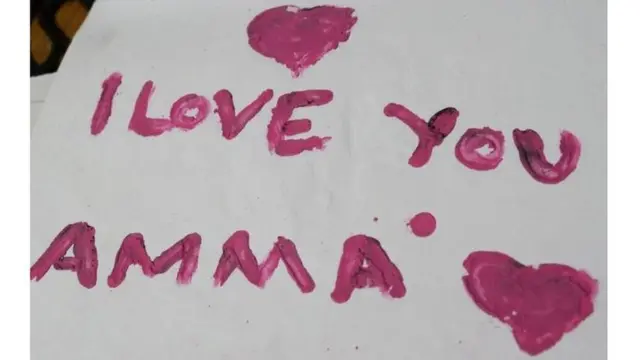 I LOVE YOU
AMMA